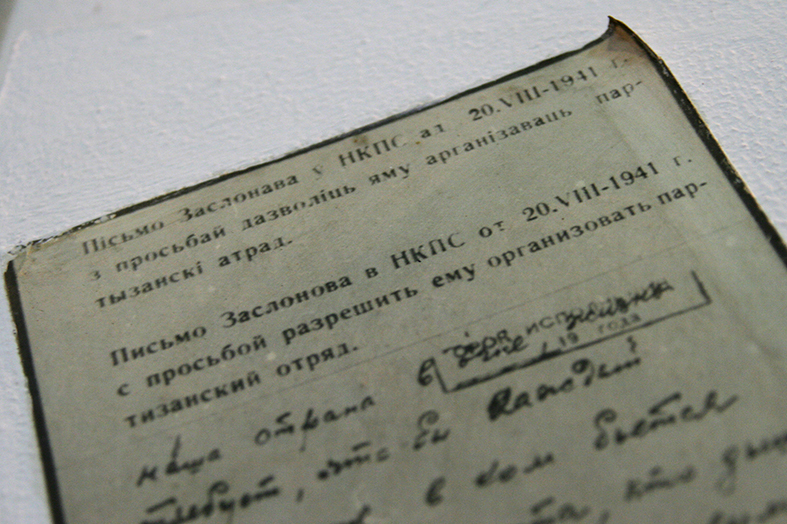 Пісьмо Заслонава у НКПС ад 20.VIII-1941 г.
з просьбай дазволіць яму арганізаваць пар-
тызанскі атрад.
Письмо Заслонова в НКПС от 20.VIII-1941 г.
с просьбой разрешить ему организовать пар-
тизанский отряд.
срок исполнения
19 года
наша страна в огне, жизнь
требует, что бы каждый
в ком бьется
кто